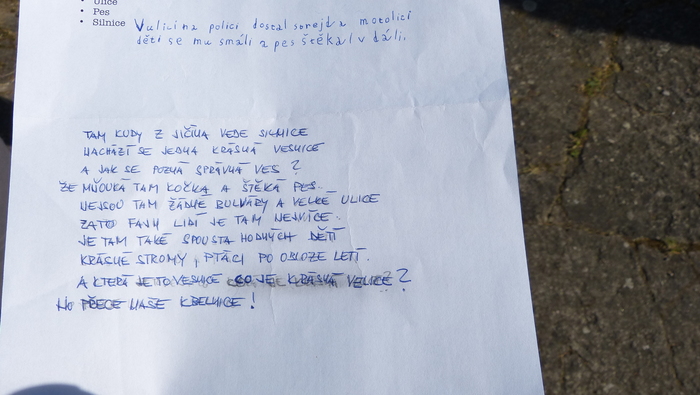 • Ulice
• Pes
• Silnice
V ulici na polici dostal strejda motolici
děti se mu smáli a pes štěkal v dáli.
TAM KUDY Z JIČÍNA VEDE SILNICE
NACHÁZÍ SE JEDNA KRÁSNÁ VESNICE
A JAK SE POZNÁ SPRÁVNÁ VES ?
ŽE MŇOUKÁ TAM KOČKA A ŠTĚKÁ PES..
NEJSOU TAM ŽÁDNÉ BULVÁRY A VELKÉ ULICE
ZATO FAJN LIDÍ JE TAM NEJVÍCE..
JE TAM TAKÉ SPOUSTA HODNÝCH DĚTÍ
KRÁSNÉ STROMY , PTÁCI PO OBLOZE LETÍ.
A KTERÁ JE TO VESNICE CO JE KRÁSNÁ VELICE ?
NO PŘECE NAŠE KBELNICE !